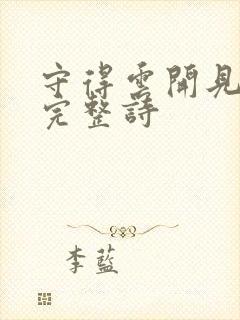 守得雲開見
完整詩
李藍